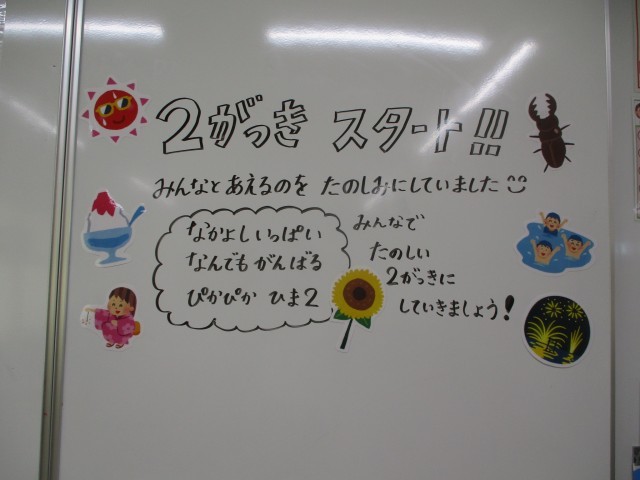 2がっき スタート!!
みんなとあえるのを たのしみにしていました
なかよしいっぱい
なんでもがんばる
ぴかぴか ひま2
みんなで
たのしい
2がっきに
していきましょう!